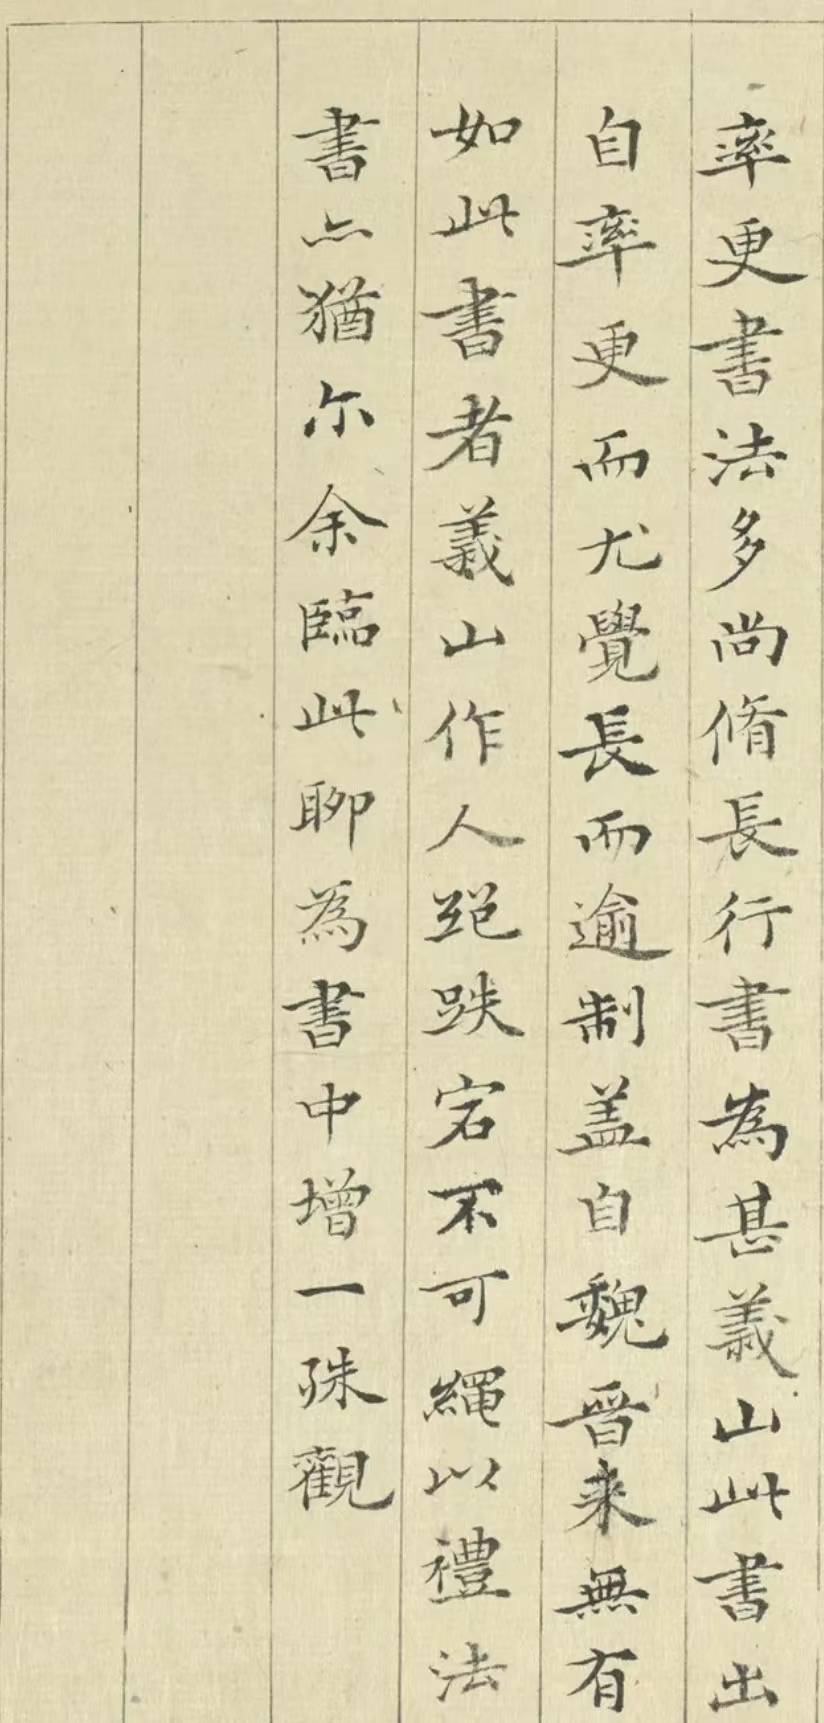 率更書法多尚脩長行書為甚義山此書出
自率更而尤覺長而逾制蓋自魏晉来無有
如此書者義山作人跌宕不可繩以禮法
書亦猶尔余臨此聊為書中增一殊觀